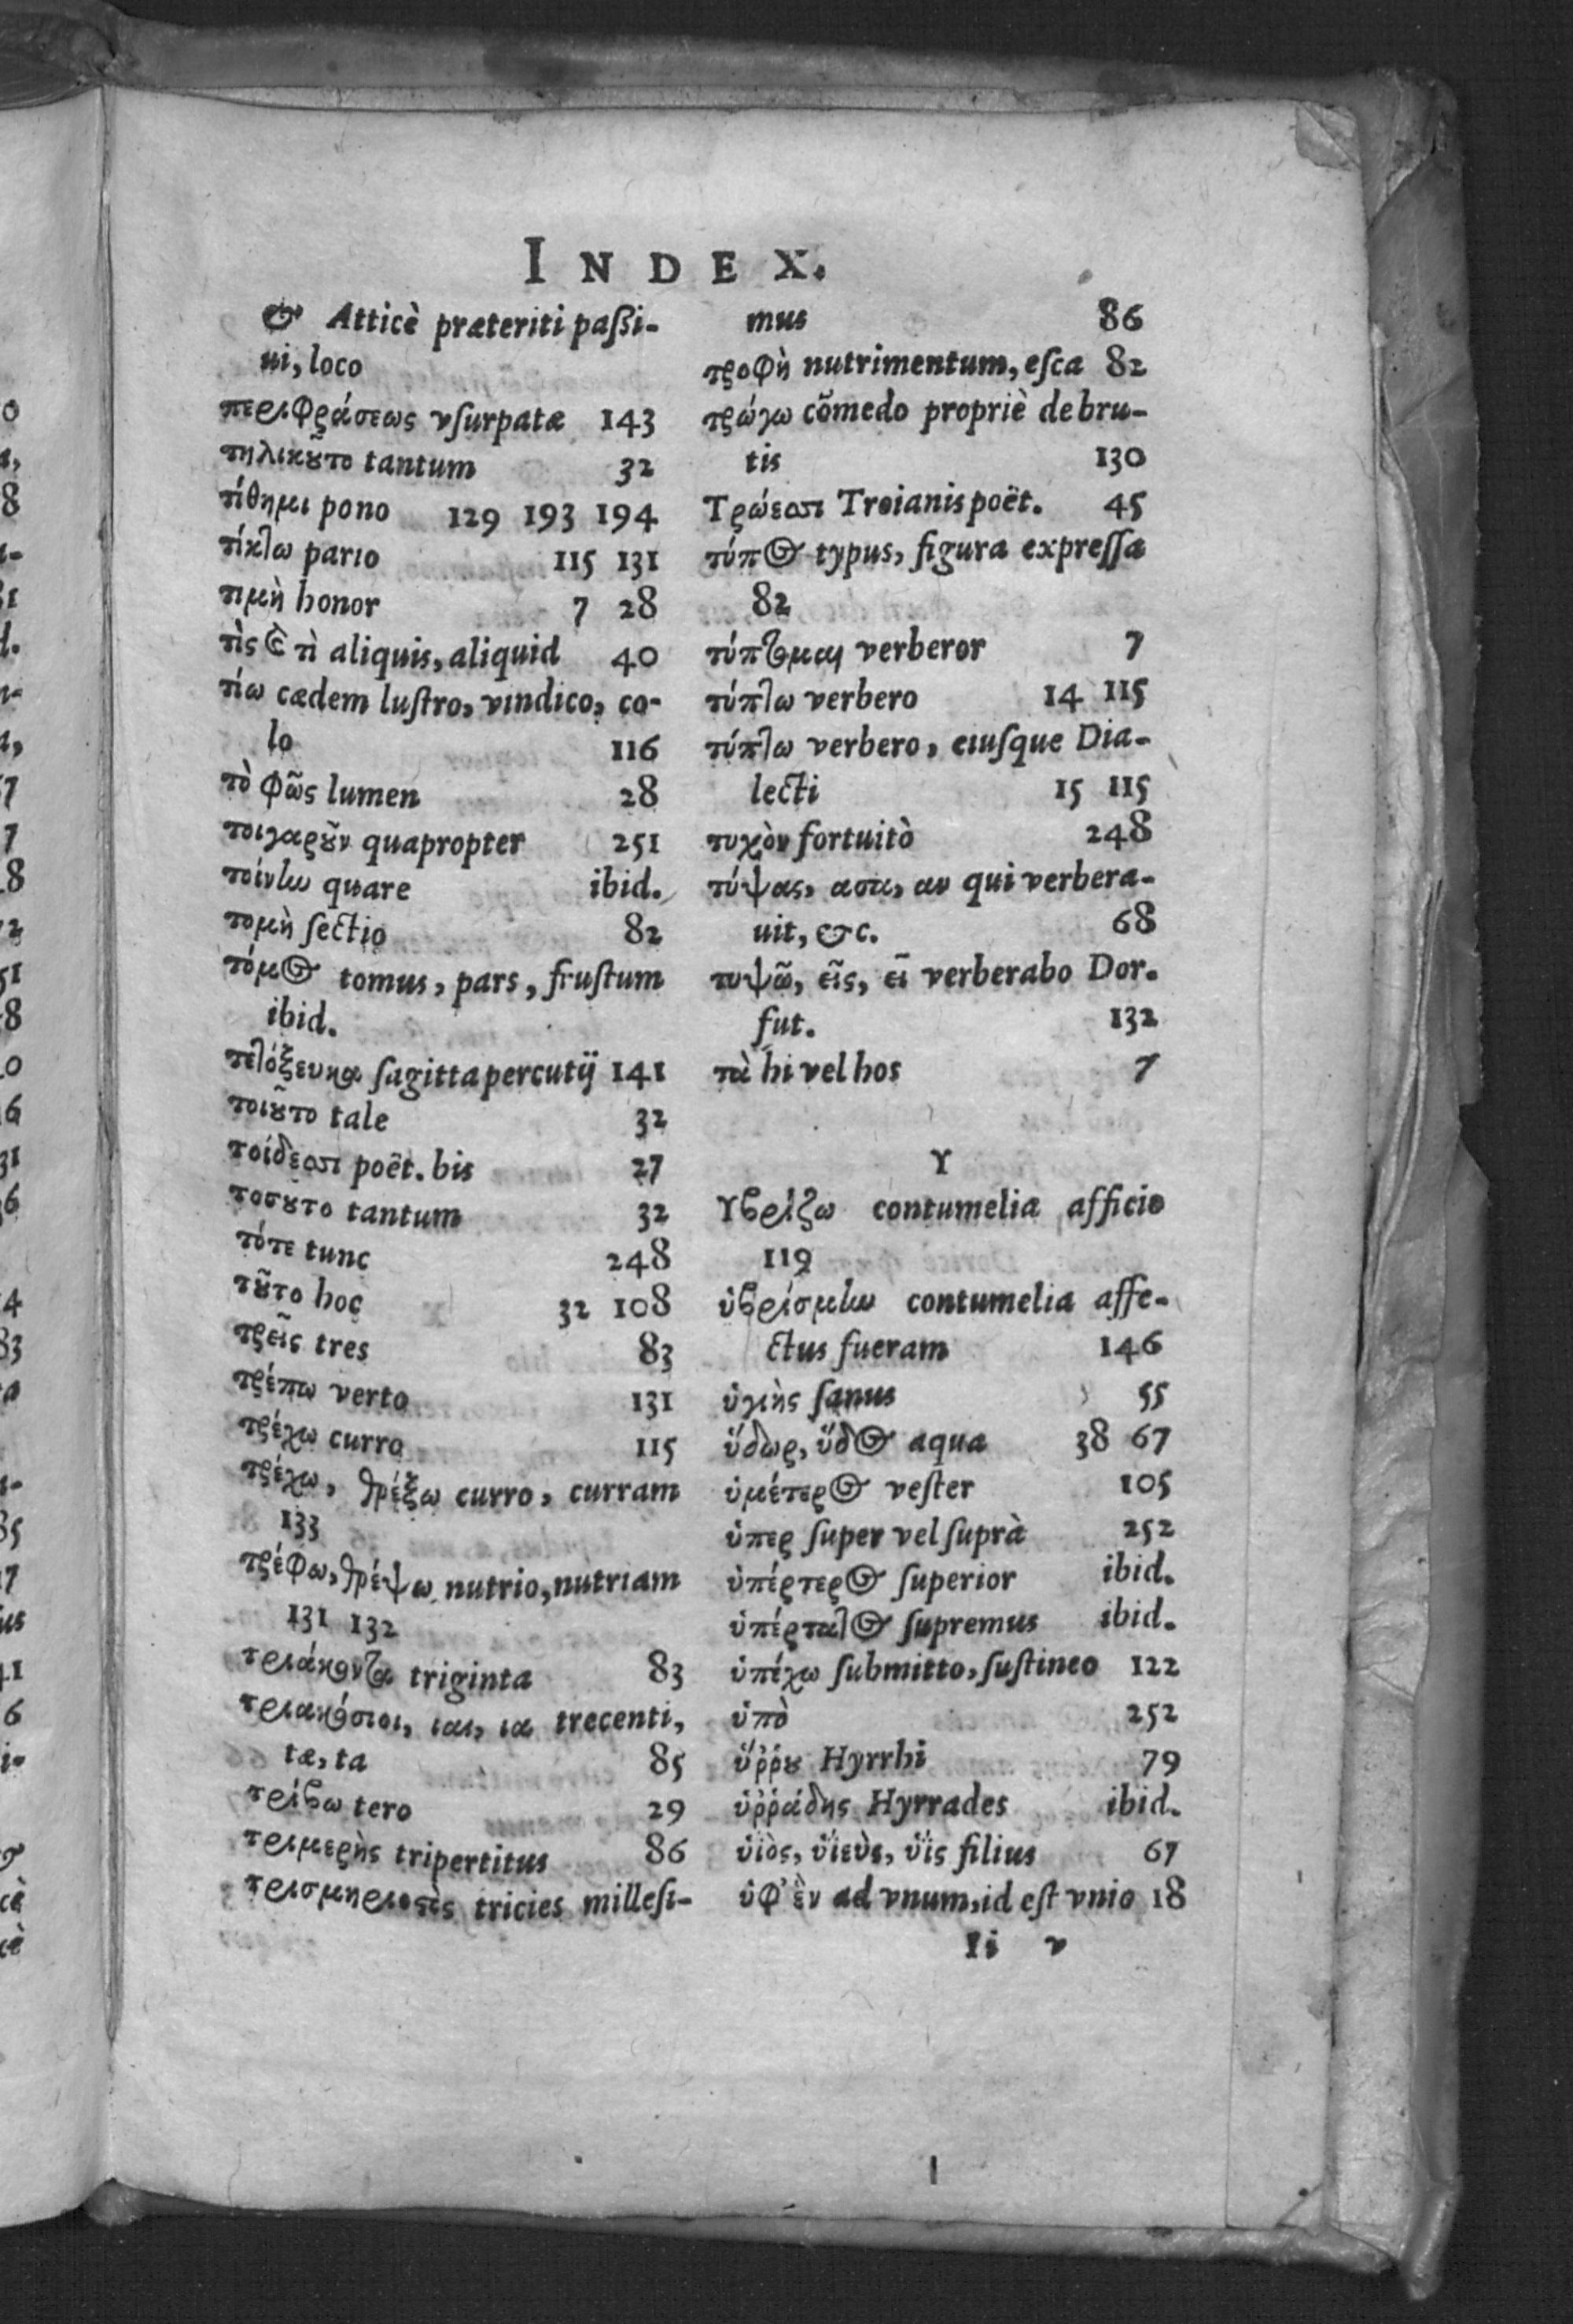 INDEX.
& Atticè præteriti passi-
ui, loco
περιφράσεως vsurpatæ 143
τηλικοῦτο tantum 32
τίθημι pono 129 193 194
τίκτω pario 115 131
τιμὴ honor 7 28
τὶς καὶ τὶ aliquis, aliquid 40
τίω cædem lustro, vindico, co-
lo 116
τὸ φῶς lumen 28
τοιγαροῦν quapropter 251
τοίνυν quare ibid.
τομὴ sectio 82
τόμος tomus, pars, frustum
ibid.
τετόξευκα sagitta percutij 141
τοιοῦτο tale 32
τοίδεσσι poët. bis 27
τοσοῦτο tantum 32
τότε tunc 248
τοῦτο hoc 32 108
τρεῖς tres 83
τρέπω verto 131
τρέχω curro 115
τρέχω, θρέξω curro, curram
133
τρέφω, θρέψω nutrio, nutriam
131 132
τριάκοντα triginta 83
τριακόσιοι, ιαι, ια trecenti,
tæ, ta 85
τρίβω tero 29
τριμερὴς tripertitus 86
τρισμηριοστὸς tricies millesi-
mus 86
τροφὴ nutrimentum, esca 82
τρώγω cõmedo propriè de bru-
tis 130
Τρώεσσι Troianis poët. 45
τύπος typus, figura expressa
82
τύπτομαι verberor 7
τύπτω verbero 14 115
τύπτω verbero, eiusque Dia-
lecti 15 115
τυχὸν fortuitò 248
τύψας, ασα, αν qui verbera-
uit, &c. 68
τυψῶ, εῖς, εῖ verberabo Dor.
fut. 132
τὰ hi vel hos 7
Υ
Υβρίζω contumelia afficio
119
ὑβρίσμην contumelia affe-
ctus fueram 146
ὑγιὴς sanus 55
ὕδωρ, ὕδος aqua 38 67
ὑμέτερος vester 105
ὑπερ super vel suprà 252
ὑπέρτερος superior ibid.
ὑπέρτατος supremus ibid.
ὑπέχω submitto, sustineo 122
ὑπὸ 252
ὕῤῥου Hyrrhi 79
ὑῤῥάδης Hyrrades ibid.
ὑϊὸς, ὑϊεὺς, ὕϊς filius 67
ὑφ' ἓν ad vnum, id est vnio 18
Ii v